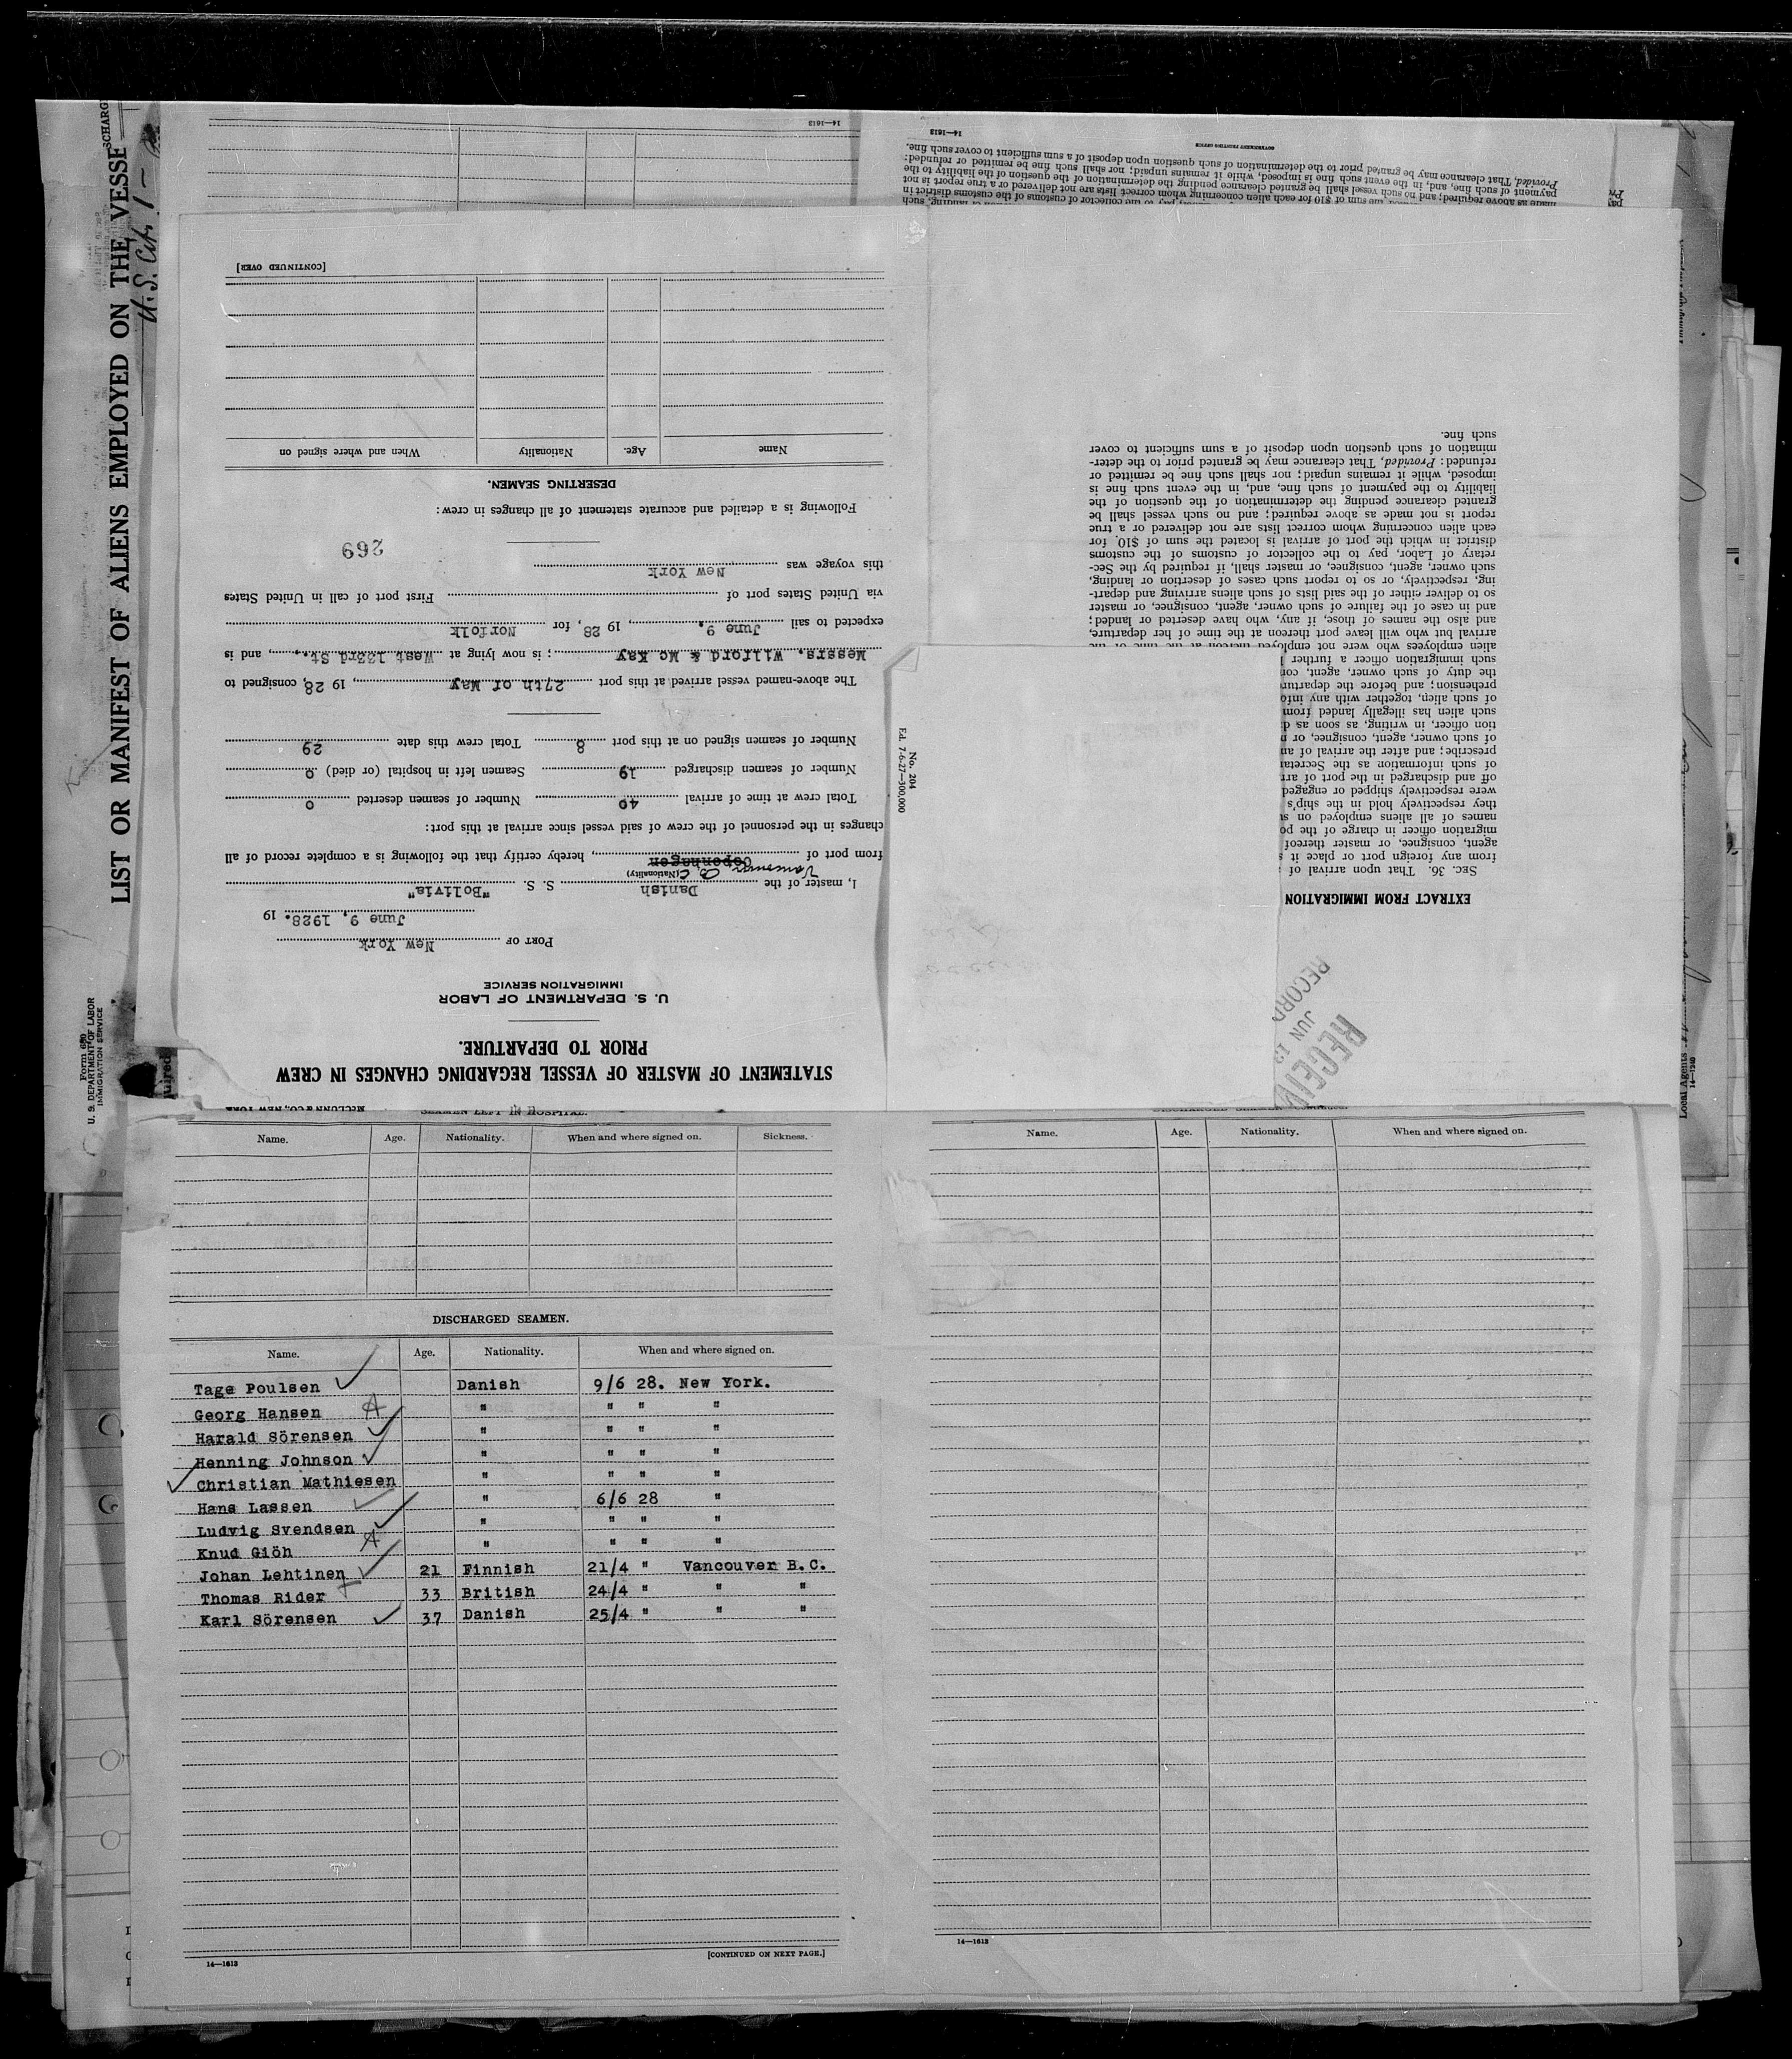 LIST OR MANIFEST OF ALIENS EMPLOYED ON THE VESSE
U.S. Cit. 1 -
Form 680
U. S. DEPARTMENT OF LABOR
IMMIGRATION SERVICE
14—1613
14—1613
GOVERNMENT PRINTING OFFICE
made as above required; and no such vessel shall be granted clearance pending the determination of the question of the liability to the
payment of such fine, and, in the event such fine is imposed, while it remains unpaid; nor shall such fine be remitted or refunded:
Provided, That clearance may be granted prior to the determination of such question upon deposit of a sum sufficient to cover such fine.
STATEMENT OF MASTER OF VESSEL REGARDING CHANGES IN CREW
PRIOR TO DEPARTURE.
U. S. DEPARTMENT OF LABOR
IMMIGRATION SERVICE
PORT OF New York
June 9, 1928. 19
I, master of the Danish S. S. "Bolivia"
(Nationality)
Vancouver B.C.
from port of Copenhagen, hereby certify that the following is a complete record of all
changes in the personnel of the crew of said vessel since arrival at this port:
Total crew at time of arrival 40 Number of seamen deserted 0
Number of seamen discharged 19 Seamen left in hospital (or died) 0
Number of seamen signed on at this port 8 Total crew this date 29
The above-named vessel arrived at this port 27th of May, 19 28, consigned to
Messrs. Wilford & Mc Kay; is now lying at West 133rd St., and is
expected to sail June 9., 19 28, for Norfolk
via United States port of First port of call in United States
this voyage was New York
269
Following is a detailed and accurate statement of all changes in crew:
DESERTING SEAMEN.
Name Age. Nationality When and where signed on
[CONTINUED OVER]
No. 204
Ed. 7-6-27—300,000
EXTRACT FROM IMMIGRATION
SEC. 36. That upon arrival of
from any foreign port or place it
agent, consignee, or master thereof
migration officer in charge of the po
names of all aliens employed on
they respectively hold in the ship's
were respectively shipped or engaged
off and discharged in the port of arr
of such information as the Secreta
prescribe; and after the arrival of an
of such owner, agent, consignee, or
tion officer, in writing, as soon as d
such alien has illegally landed from
of such alien, together with any info
prehension; and before the departur
the duty of such owner, agent, con
such immigration officer a further
alien employees who were not employed thereon at the time of the
arrival but who will leave port thereon at the time of her departure,
and also the names of those, if any, who have deserted or landed;
and in case of the failure of such owner, agent, consignee, or master
so to deliver either of the said lists of such aliens arriving and depart-
ing, respectively, or so to report such cases of desertion or landing,
such owner, agent, consignee, or master shall, if required by the Sec-
retary of Labor, pay to the collector of customs of the customs
district in which the port of arrival is located the sum of $10 for
each alien concerning whom correct lists are not delivered or a true
report is not made as above required; and no such vessel shall be
granted clearance pending the determination of the question of the
liability to the payment of such fine, and, in the event such fine is
imposed, while it remains unpaid; nor shall such fine be remitted or
refunded: Provided, That clearance may be granted prior to the deter-
mination of such question upon deposit of a sum sufficient to cover
such fine.
JUN 13
RECORD
Local Agents
14—1240
SEAMEN LEFT IN HOSPITAL.
Name. Age. Nationality. When and where signed on. Sickness.
DISCHARGED SEAMEN.
Name. Age. Nationality. When and where signed on.
Tage Poulsen Danish 9/6 28. New York.
Georg Hansen " " " "
Harald Sörensen " " " "
Henning Johnson " " " "
Christian Mathiesen " " " "
Hans Lassen " 6/6 28 "
Ludvig Svendsen " " " "
Knud Giöh " " " "
Johan Lehtinen 21 Finnish 21/4 " Vancouver B.C.
Thomas Rider 33 British 24/4 " " "
Karl Sörensen 37 Danish 25/4 " " "
14—1613
[CONTINUED ON NEXT PAGE.]
Name. Age. Nationality. When and where signed on.
14—1613